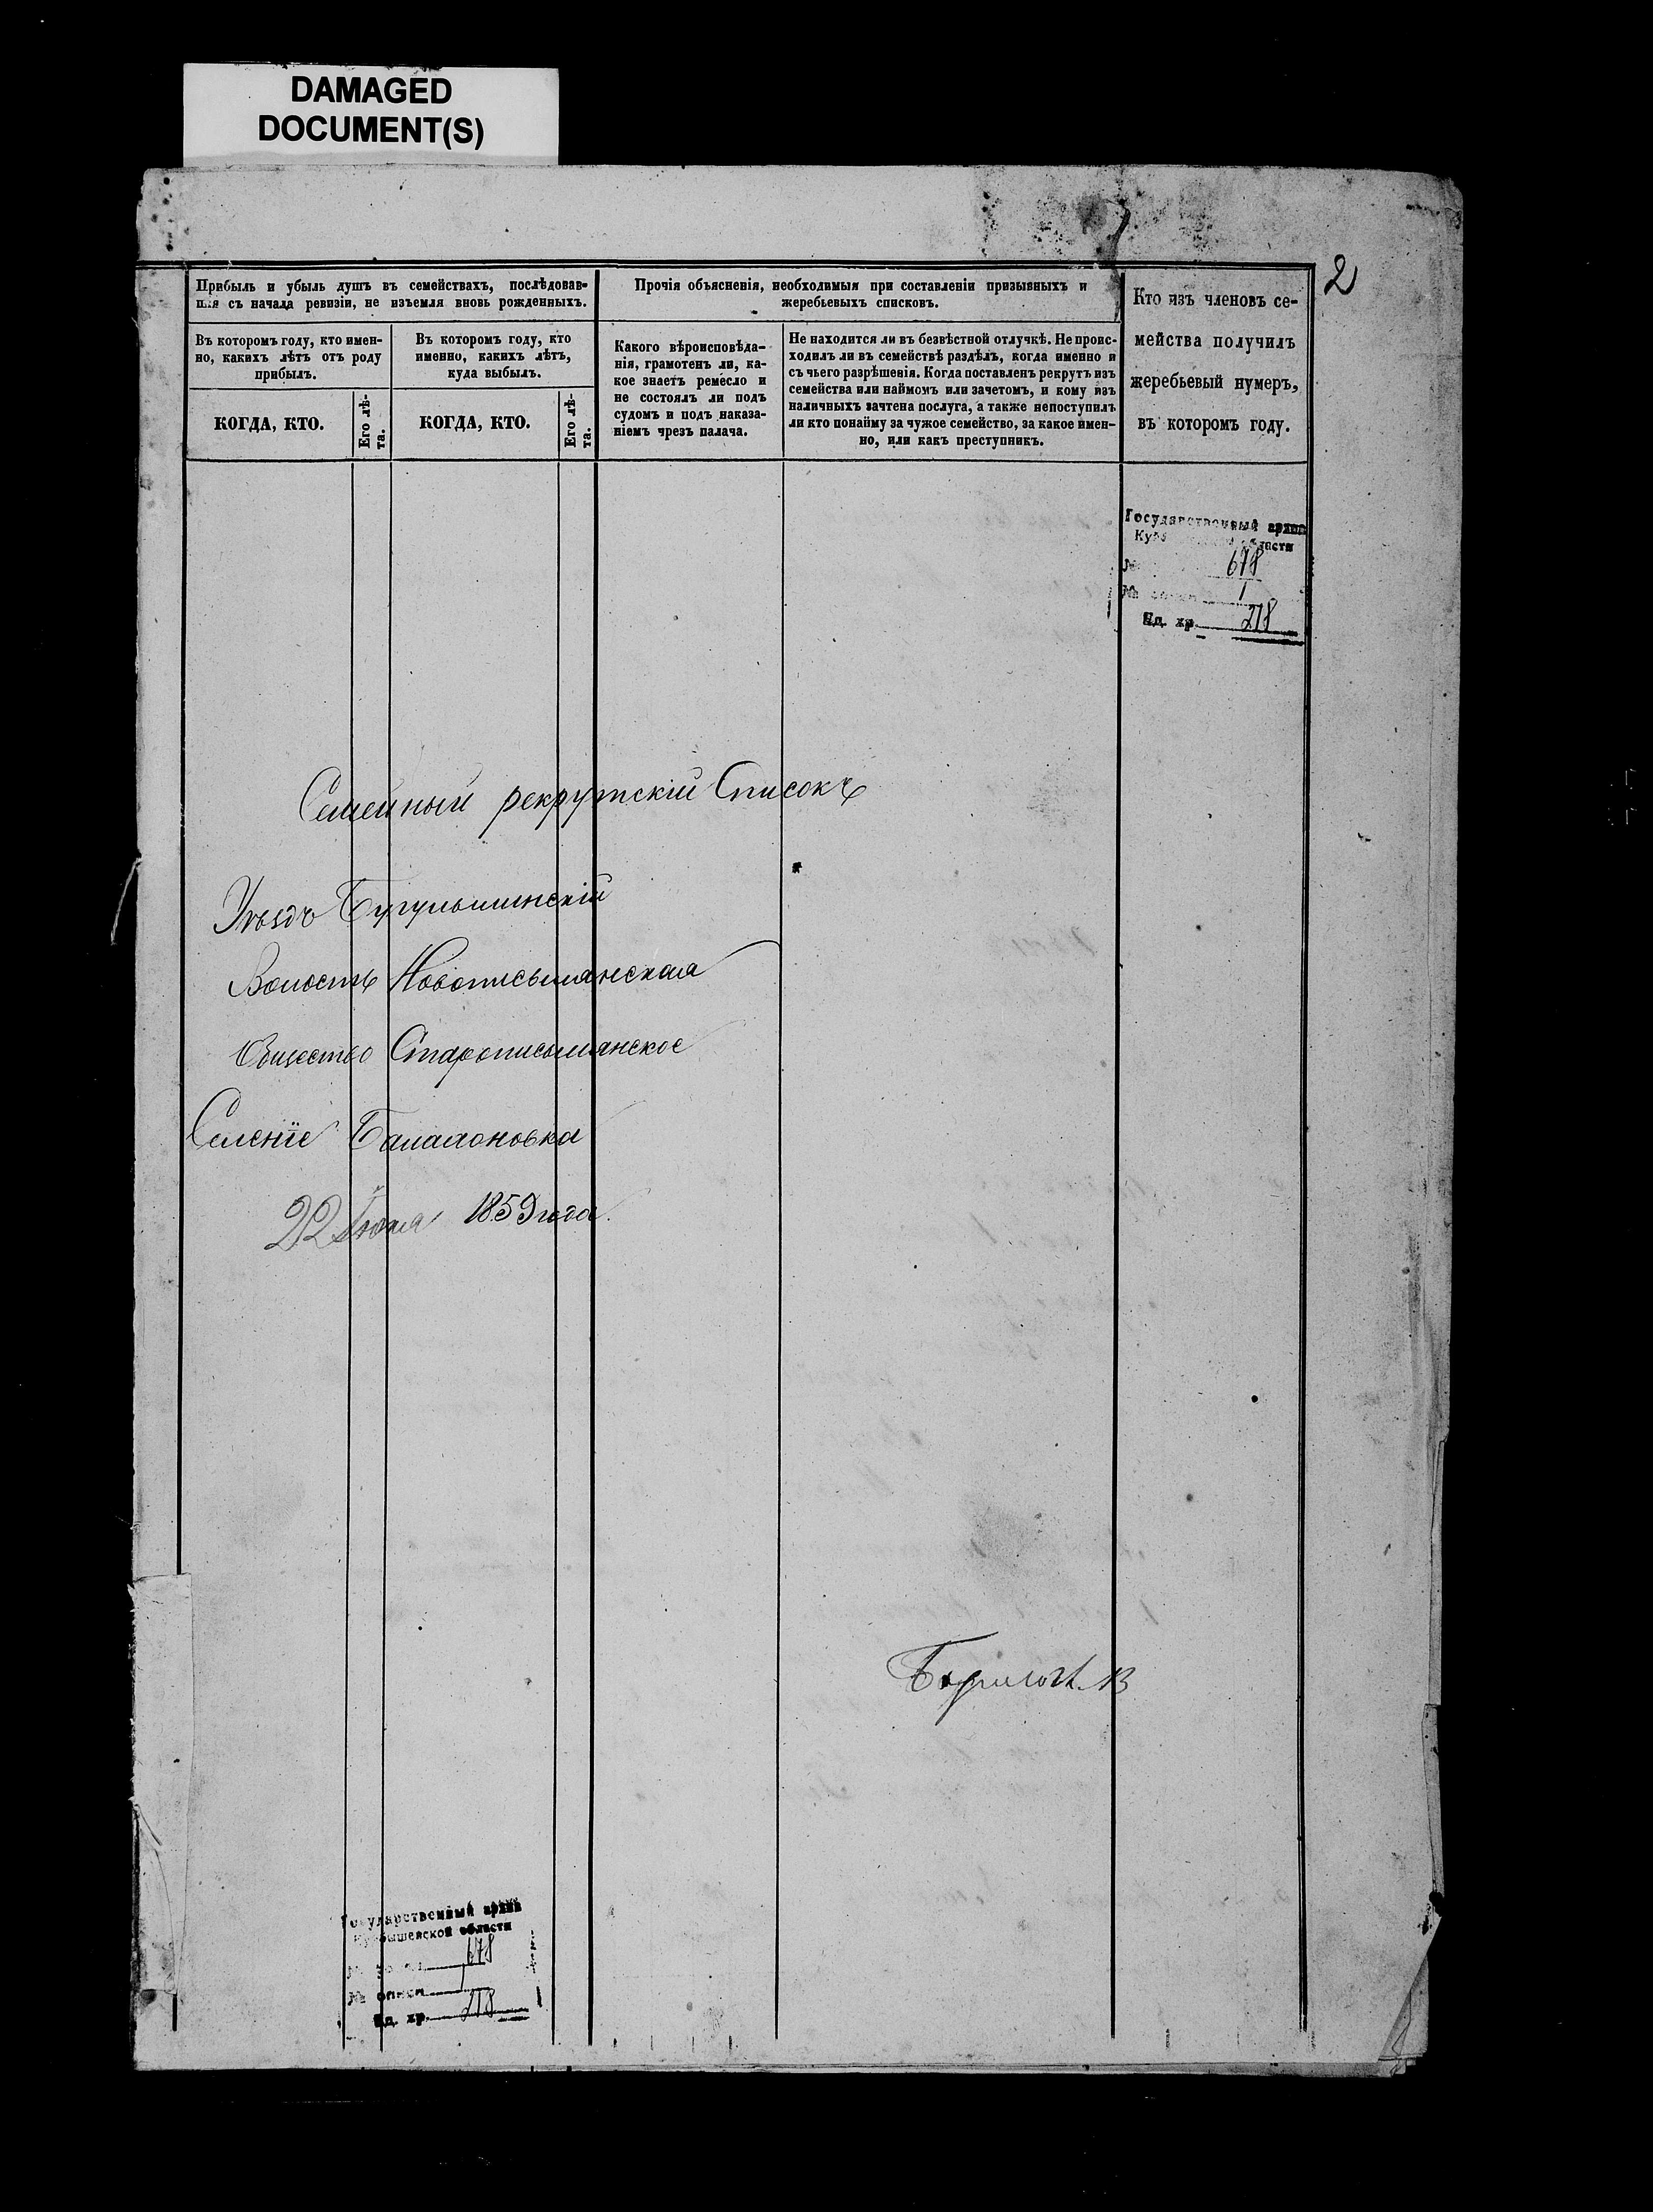 DAMAGED
DOCUMENT(S)
2
Прибыль и убыль душъ въ семействахъ, послѣдовав-
шия съ начала ревизіи, не изъемля вновь рожденныхъ.
Въ которомъ году, кто имен-
но, какихъ лѣтъ отъ роду
прибылъ.
КОГДА, КТО.
Его лѣ-
та.
Въ которомъ году, кто
именно, какихъ лѣтъ,
куда выбылъ.
КОГДА, КТО.
Его лѣ-
та.
Прочія объясненія, необходимыя при составленіи призывныхъ и
жеребьевыхъ списковъ.
Какого вѣроисповѣда-
нія, грамотенъ ли, ка-
кое знаетъ ремесло и
не состоялъ ли подъ
судомъ и подъ наказа-
ніемъ чрезъ палача.
Не находится ли въ безвѣстной отлучкѣ. Не проис-
ходилъ ли въ семействѣ раздѣлъ, когда именно и
съ чьего разрѣшенія. Когда поставленъ рекрутъ изъ
семейства или наймомъ или зачетомъ, и кому изъ
наличныхъ зачтена послуга, а также непоступилъ
ли кто понайму за чужое семейство, за какое имен-
но, или какъ преступникъ.
Кто изъ членовъ се-
мейства получилъ
жеребьевый нумеръ,
въ которомъ году.
Государственный архив
области
№ 678
№ описи 1
Ед. хр. 218
Семейный рекрутскій Списокъ
Уѣздъ Бугульминскій
Волость Новописьмянская
Общество Старописьмянское
Селеніе
22 1859 года.
Государственный архив
Куйбышевской области
№ 678
№ описи 1
Ед. хр. 218